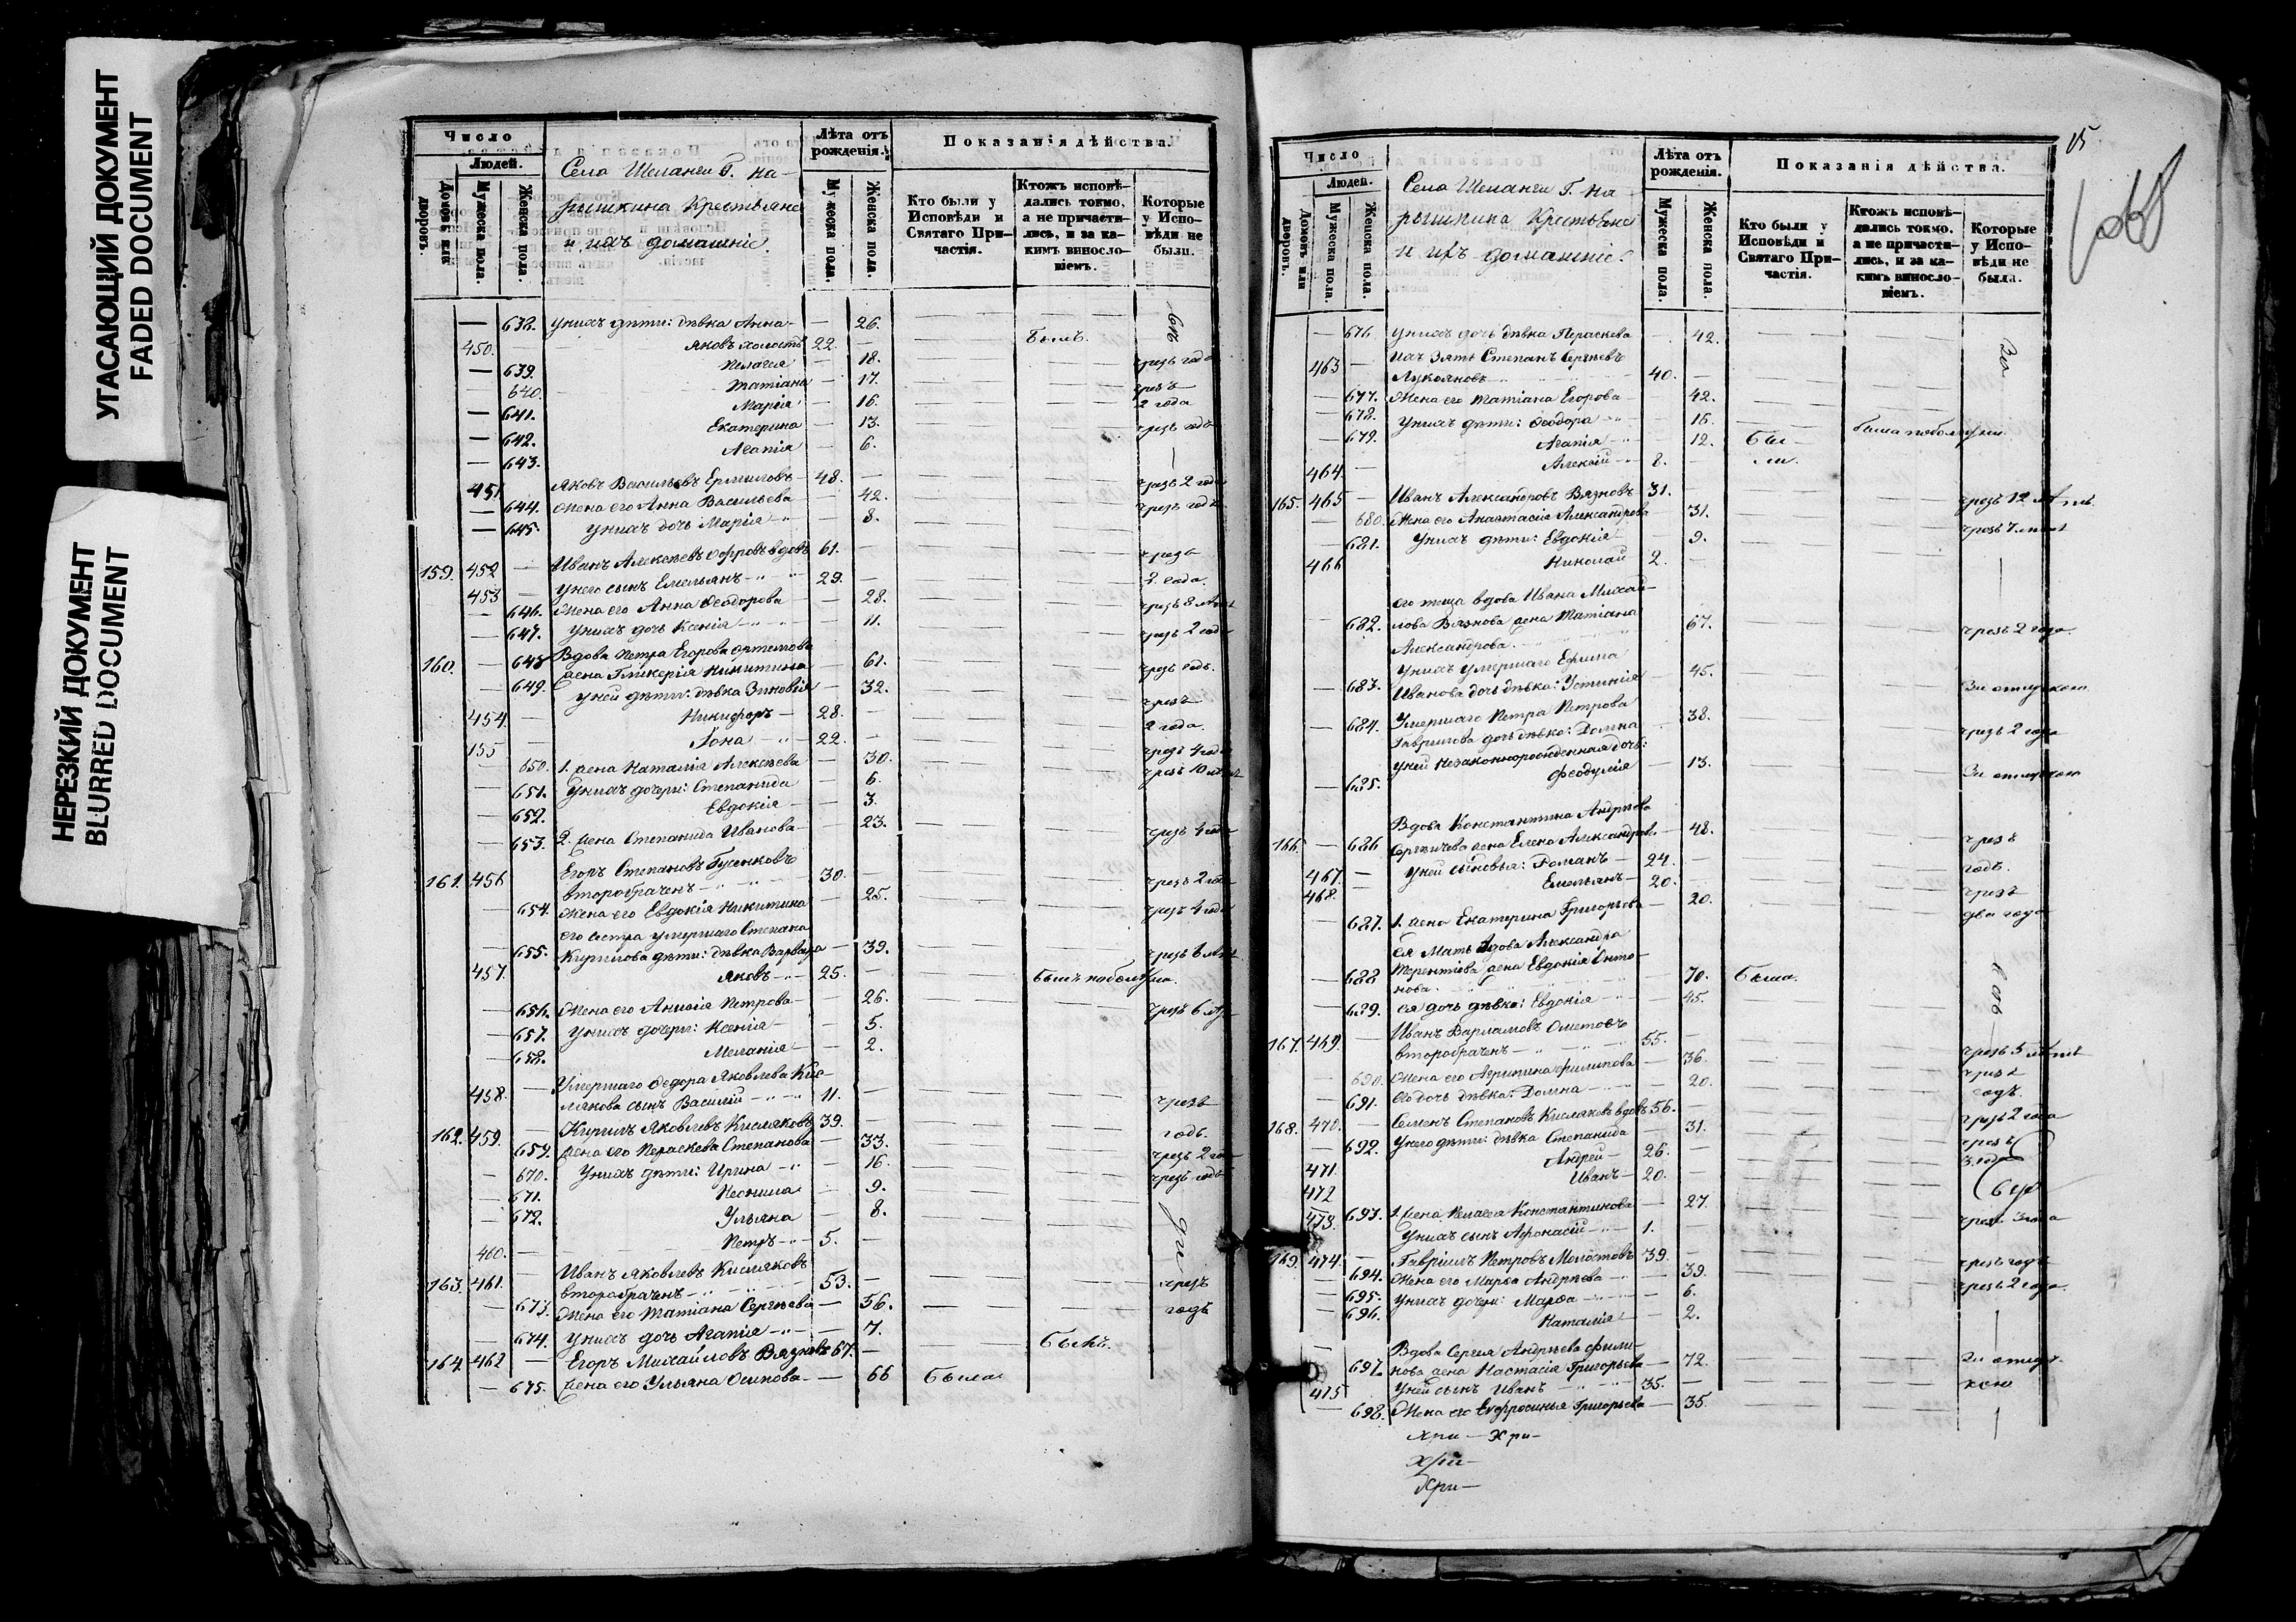 УГАСАЮЩИЙ ДОКУМЕНТ
FADED DOCUMENT
НЕРЕЗКИЙ ДОКУМЕНТ
BLURRED DOCUMENT
Число
Людей.
Домовъ или дворовъ.
Мужеска пола.
Женска пола.
Села Шеланги Г. На-
рышкина Крестьяне
и ихъ домашніе.
Лѣта отъ рожденія.
Мужеска пола.
Женска пола.
Показанія дѣйства.
Кто были у Исповѣди и Святаго Причастія.
Ктожъ исповѣдались токмо, а не причастились, и за какимъ винословіемъ.
Которые у Исповѣди не были.
— 638. У нихъ дѣти: дѣвка Анна — 26.
450. Яковъ холостъ 22. — былъ.
— 639. Пелагея — 18. чрезъ годъ
— 640. Татіана — 17. чрезъ
— 641. Марія — 16. 2 года
— 642. Екатерина — 13. чрезъ годъ
— 643. Агапія — 6.
451. Яковъ Васильевъ Ермиловъ — 48. — чрезъ 2 года
— 644. Жена его Анна Васильева — 42. чрезъ годъ
— 645. У нихъ дочь Марія — 8.
159. 452 — Иванъ Алексѣевъ вдовъ 61. — чрезъ
453 — У него сынъ Емельянъ 29. — 2 года.
— 646. Жена его Анна Ѳеодорова — 28.
— 647. У нихъ дочь Ксенія — 11. чрезъ 2 года
160. — 648 Вдова Петра Егорова Артемова
жена Гликерія Никитина — 61. чрезъ годъ.
— 649. У ней дѣти: дѣвка Зиновія — 32. чрезъ
454 — Никифоръ — 28. — 2 года
155 — Іона 22. — чрезъ 4 года
650. 1. жена Наталія Алексѣева — 30. чрезъ 10 лѣтъ
— 651. У нихъ дочери: Степанида — 6.
— 652. Евдокія — 3.
— 653. 2. жена Степанида Иванова — 23. чрезъ 4 года
161. 456 Егоръ Степановъ Гусенковъ
второбраченъ 30. — чрезъ 2 года
— 654. Жена его Евдокія Никитина — 25. чрезъ 4 года
его сестра умершаго Степана
— 655. Кирилова дѣти: дѣвка Варвара — 39.
457. Яковъ 25. — былъ по болѣзни.
— 656. Жена его Анисія Петрова — 26. чрезъ 6 лѣ
— 657. У нихъ дочери: Ксенія — 5.
— 658. Меланія — 2.
458. — Умершаго Ѳедора Яковлева Кис-
лякова сынъ Василій 11. — чрезъ
162. 459. — Кирилъ Яковлевъ Кисляковъ 39. — годъ.
659. Жена его Параскева Степанова — 33. чрезъ 2 го
— 670. У нихъ дѣти: Ирина — 16. чрезъ годъ
— 671. Неонила — 9.
— 672. Ульяна — 8.
460. — Петръ 5. —
163. 461. — Иванъ Яковлевъ Кисляковъ
второбраченъ 53. — чрезъ
— 673. Жена его Татіана Сергѣева — 56. годъ
— 674. У нихъ дочь Агапія — 7.
164. 462 — Егоръ Михайловъ Вязновъ 67. — былъ.
— 675. Жена его Ульяна Осипова — 66 была
15.
Число
Людей.
Домовъ или дворовъ.
Мужеска пола.
Женска пола.
Села Шеланги Г. На-
рышкина Крестьяне
и ихъ домашніе.
Лѣта отъ рожденія.
Мужеска пола.
Женска пола.
Показанія дѣйства.
Кто были у Исповѣди и Святаго Причастія.
Ктожъ исповѣдались токмо, а не причастились, и за какимъ винословіемъ.
Которые у Исповѣди не были.
— 676 У нихъ дочь дѣвка Параскева — 42.
463 — Ихъ зять Степанъ Сергѣевъ
Лукояновъ 40. —
— 677. Жена его Татіана Егорова — 42.
— 678. У нихъ дѣти: Ѳеодора — 16. была по болѣзни.
— 679. Агапія — 12. бы-
464 — Алексій 8. — ли.
165. 465 — Иванъ Александровъ Вязновъ 31. чрезъ 12 лѣтъ
— 680. Жена его Анастасія Александрова 31.
— 681. У нихъ дѣти: Евдокія — 9.
466 Николай 2. —
его теща вдова Ивана Михай-
— 682. лова Вязнова жена Татіана 67. чрезъ 2 года.
Александрова.
У нихъ умершаго Ефима
— 683. Иванова дочь дѣвка: Устинія — 45. За отлучкою
— 684. Умершаго Петра Петрова 38.
Гаврилова дочь дѣвка: Домна чрезъ 2 года
у ней незаконнорожденная дочь:
— 685. Ѳеодулія — 13. За отлучкою
Вдова Константина Андрѣева
166. — 686 Сергѣичева жена Елена Александрова — 48. чрезъ
467. — У ней сыновья: Романъ — 24. — годъ.
468. Емельянъ — 20. — чрезъ
— 687. 1. жена Екатерина Григорьева — 20. два года
Ея мать вдова Александра
— 688 Терентіева жена Евдокія Анто-
нова. 70. была.
— 689. ея дочь дѣвка: Евдокія — 45.
167. 469. — Иванъ Варламовъ Ометовъ
второбраченъ 55. —
690. Жена его Агрипина Филипова — 36. чрезъ 5 лѣтъ
— 691. Его дочь дѣвка: Домна — 20. чрезъ годъ.
168. 470. — Семенъ Степановъ Кисляковъ вдовъ 56. — чрезъ 2 года
— 692. У него дѣти: дѣвка Степанида — 31. чрезъ
471. Андрей — 26. — 3 года
472 Иванъ — 20.
473. 693. 1. жена Пелагея Константинова — 27.
У нихъ сынъ Афонасій 1. —
169. 474. — Гавріилъ Петровъ Молостовъ 39. — чрезъ годъ
694. Жена его Марѳа Андрѣева — 39. чрезъ 2 года.
— 695. У нихъ дочери: Марѳа — 6.
— 696. Наталія — 2.
Вдова Сергея Андрѣева Фили-
— 697. нова жена Настасія Григорьева — 72. За отлуч-
475 У ней сынъ Иванъ 35. — кою
— 698. Жена его Евфросинья Григорьева — 35.
Хри — Хри —
Хри —
Хри —